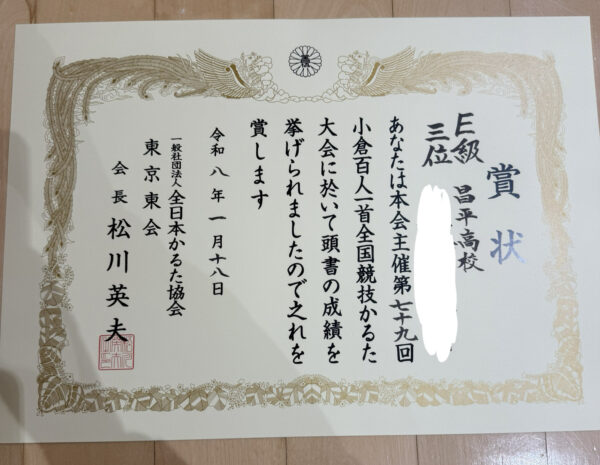 賞状
E級 昌平高校
三位
あなたは本会主催第七十九回
小倉百人一首全国競技かるた
大会に於いて頭書の成績を
挙げられましたので之れを
賞します
令和八年一月十八日
一般社団法人 全日本かるた協会
東京東会
会長 松川英夫